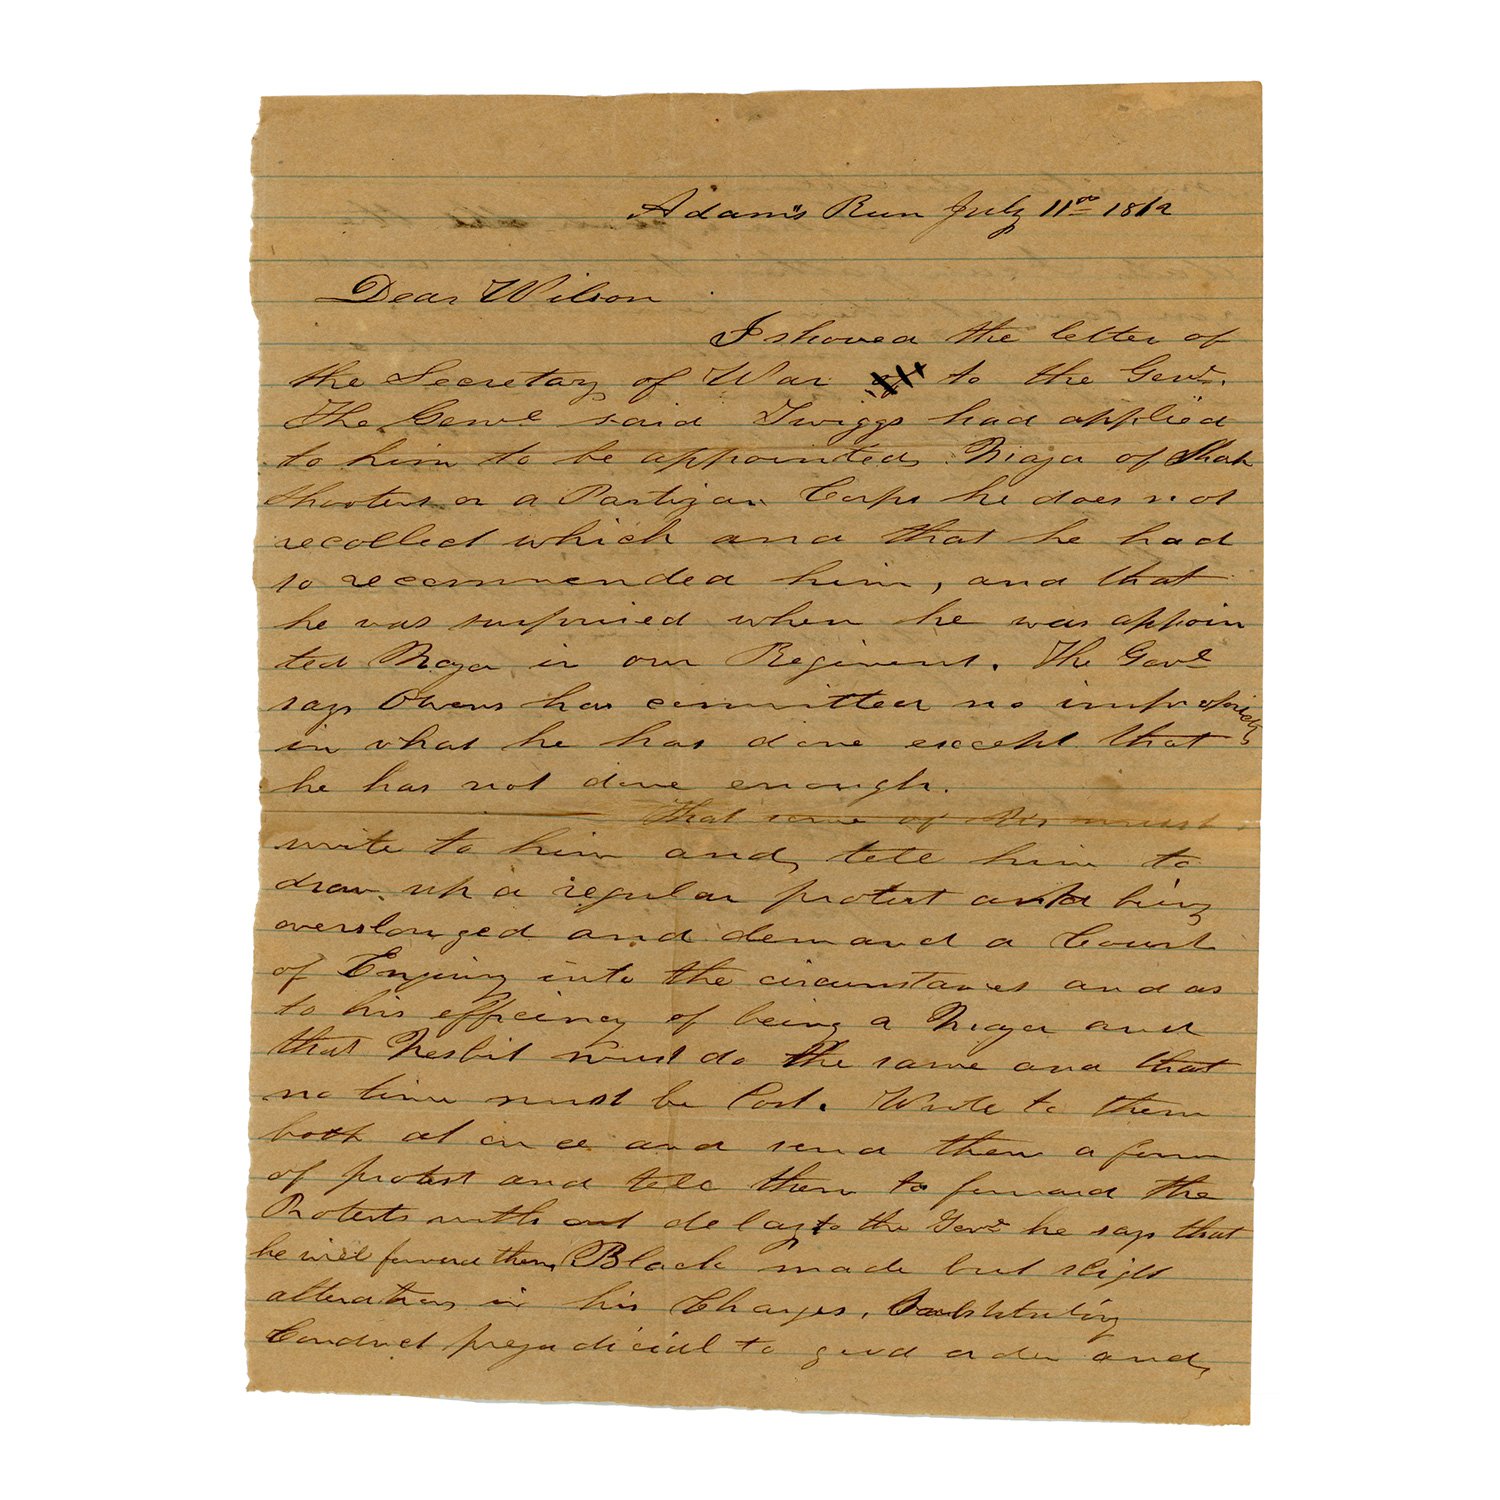 Adam's Run July 11th 1862
Dear Wilson
I showed the letter of
the Secretary of War to the Genl.
The Genl said Twiggs had applied
to him to be appointed Major of Sharp
shooters or a Partizan Corps he does not
recollect which and that he had
so recommended him, and that
he was surprised when he was appoin
ted Major in our Regiment. The Genl
says Owens has committed no impropriety
in what he has done except that
he has not done enough.
That some of us must
write to him and tell him to
draw up a regular protest as to being
overslouged and demand a Court
of Enquiry into the circumstances and as
to his efficiency of being a Major and
that Nesbit must do the same and that
no time must be lost. Write to them
both at once and send them a form
of protest and tell them to forward the
Protests with out delay to the Genl he says that
he will forward them. Black made but slight
alterations in his Charges, Substituting
Conduct prejudicial to good order and